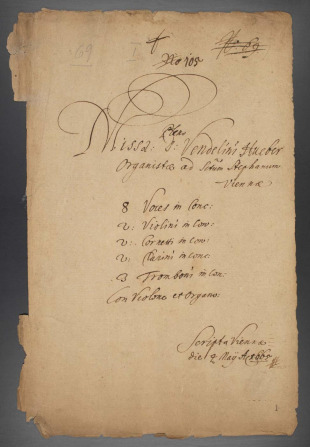 No 105
Missa: S: Vendelini Hueber
Organistæ ad Sctum Stephanum
Viennæ
8 Voces in Conc:
2: Violini in Con:
2: Cornetti in Con:
2: Clarini in conc:
3 Tromboni in Con:
Con Violone et Organo:
Scripta Viennæ
die 2 Maÿ
1